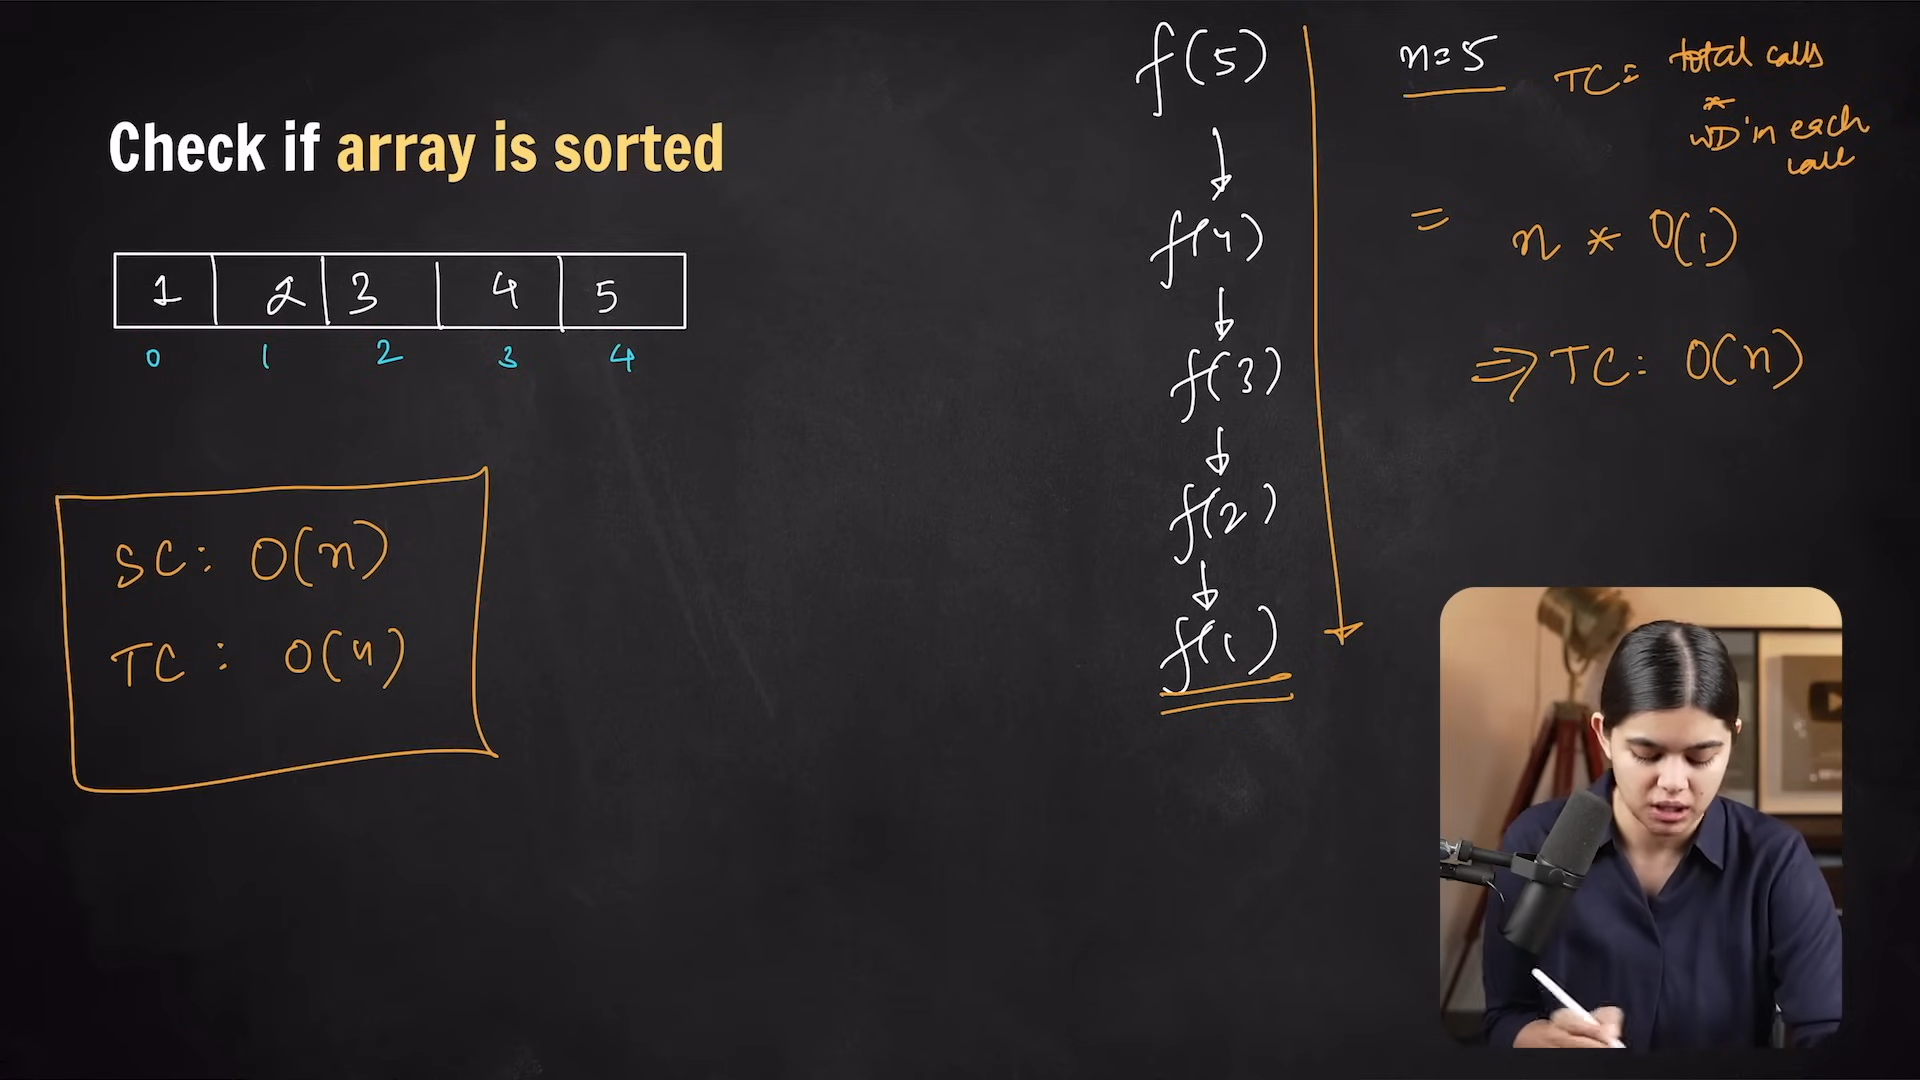 Check if array is sorted
1 2 3 4 5
0 1 2 3 4
SC: O(n)
TC: O(n)
f(5)
f(4)
f(3)
f(2)
f(1)
n=5
TC= total calls
*
WD in each
call
= n * O(1)
⇒ TC: O(n)